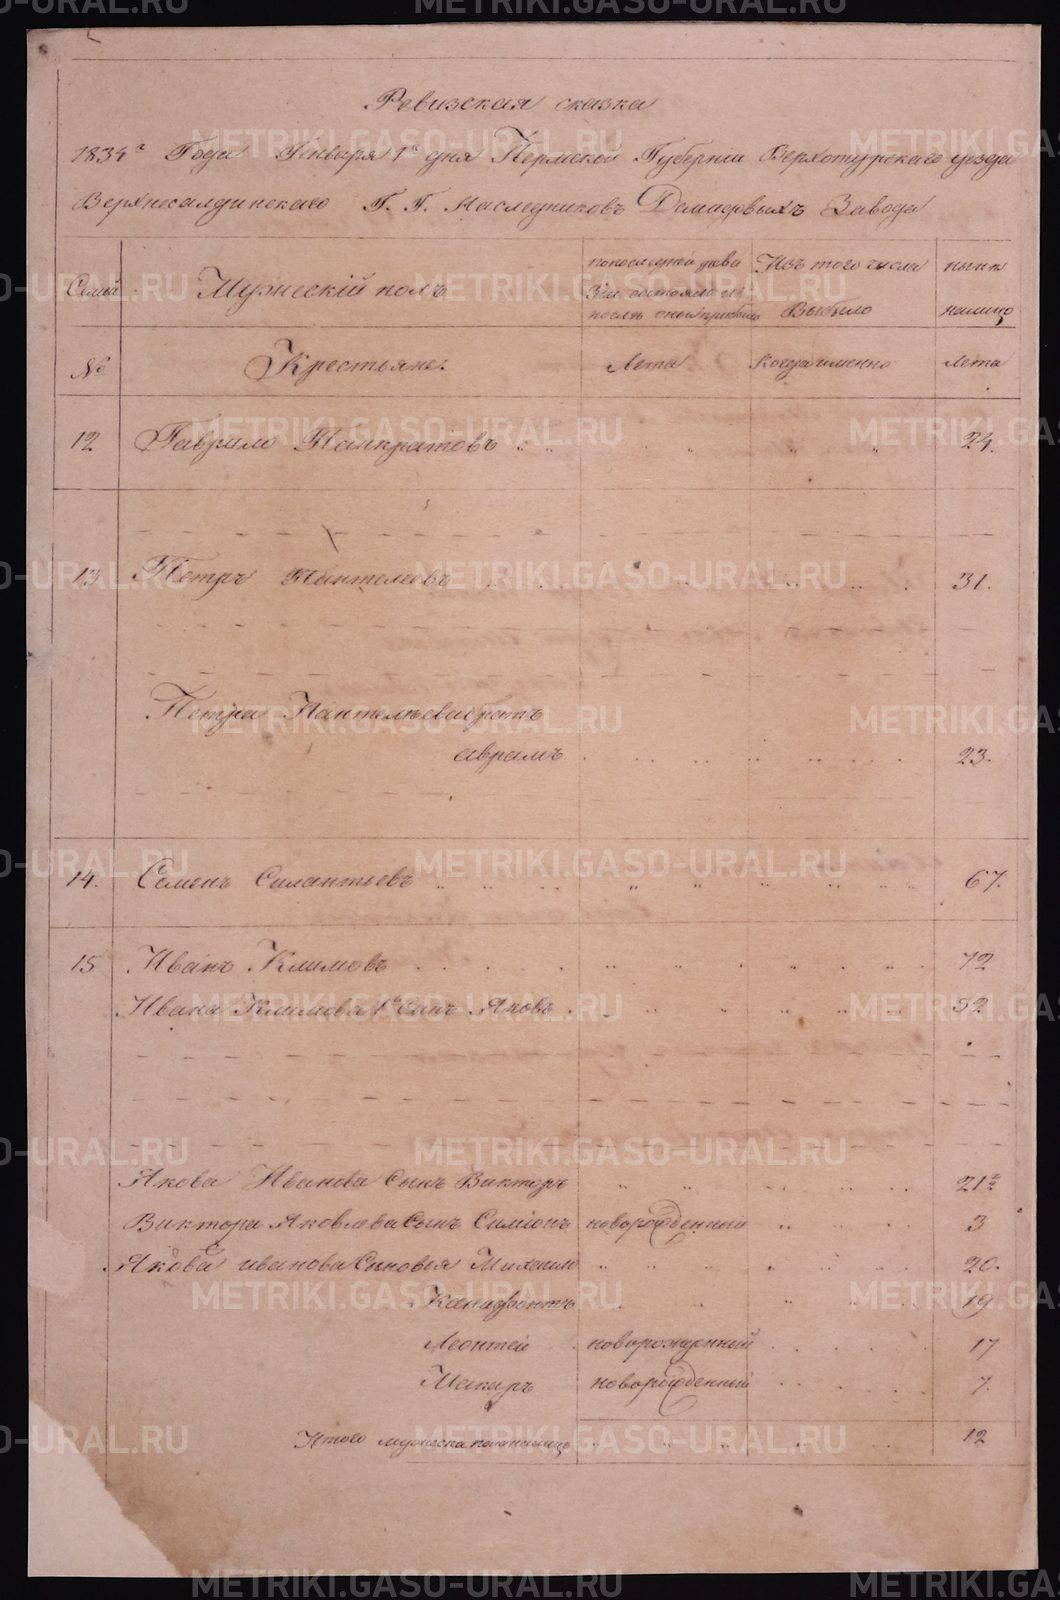 Ревизская сказка
1834го Года Января 1го дня Пермской Губерніи Верхотурскаго уезда
Верхнесалдинскаго Г. Г. Наследниковъ Демидовыхъ Завода
Семьи
Мужескій полъ
по последней реви
зіи состояло и
после оной прибыло
Изъ того числа
Выбыло
ныне
налицо
№
Крестьяне:
Лета
Когда именно
Лета
12 Гаврило Панкратовъ 24.
13 Петръ Пантелеевъ 31.
Петра Пантелѣева братъ
аврамъ 23.
14. Семенъ Силантьевъ 67.
15 Иванъ Климовъ 72
Ивана Климова 1й Сынъ Яковъ 52
Якова Иванова Сынъ Викторъ 21½
Виктора Яковлева Сынъ Симіонъ новорожденный 3
Якова иванова Сыновья Михаило 20.
Ксенофонтъ 19
Леонтей новорожденный 17
Макаръ новорожденный 7.
Итого мужеска пола налицо 12
METRIKI.GASO-URAL.RU